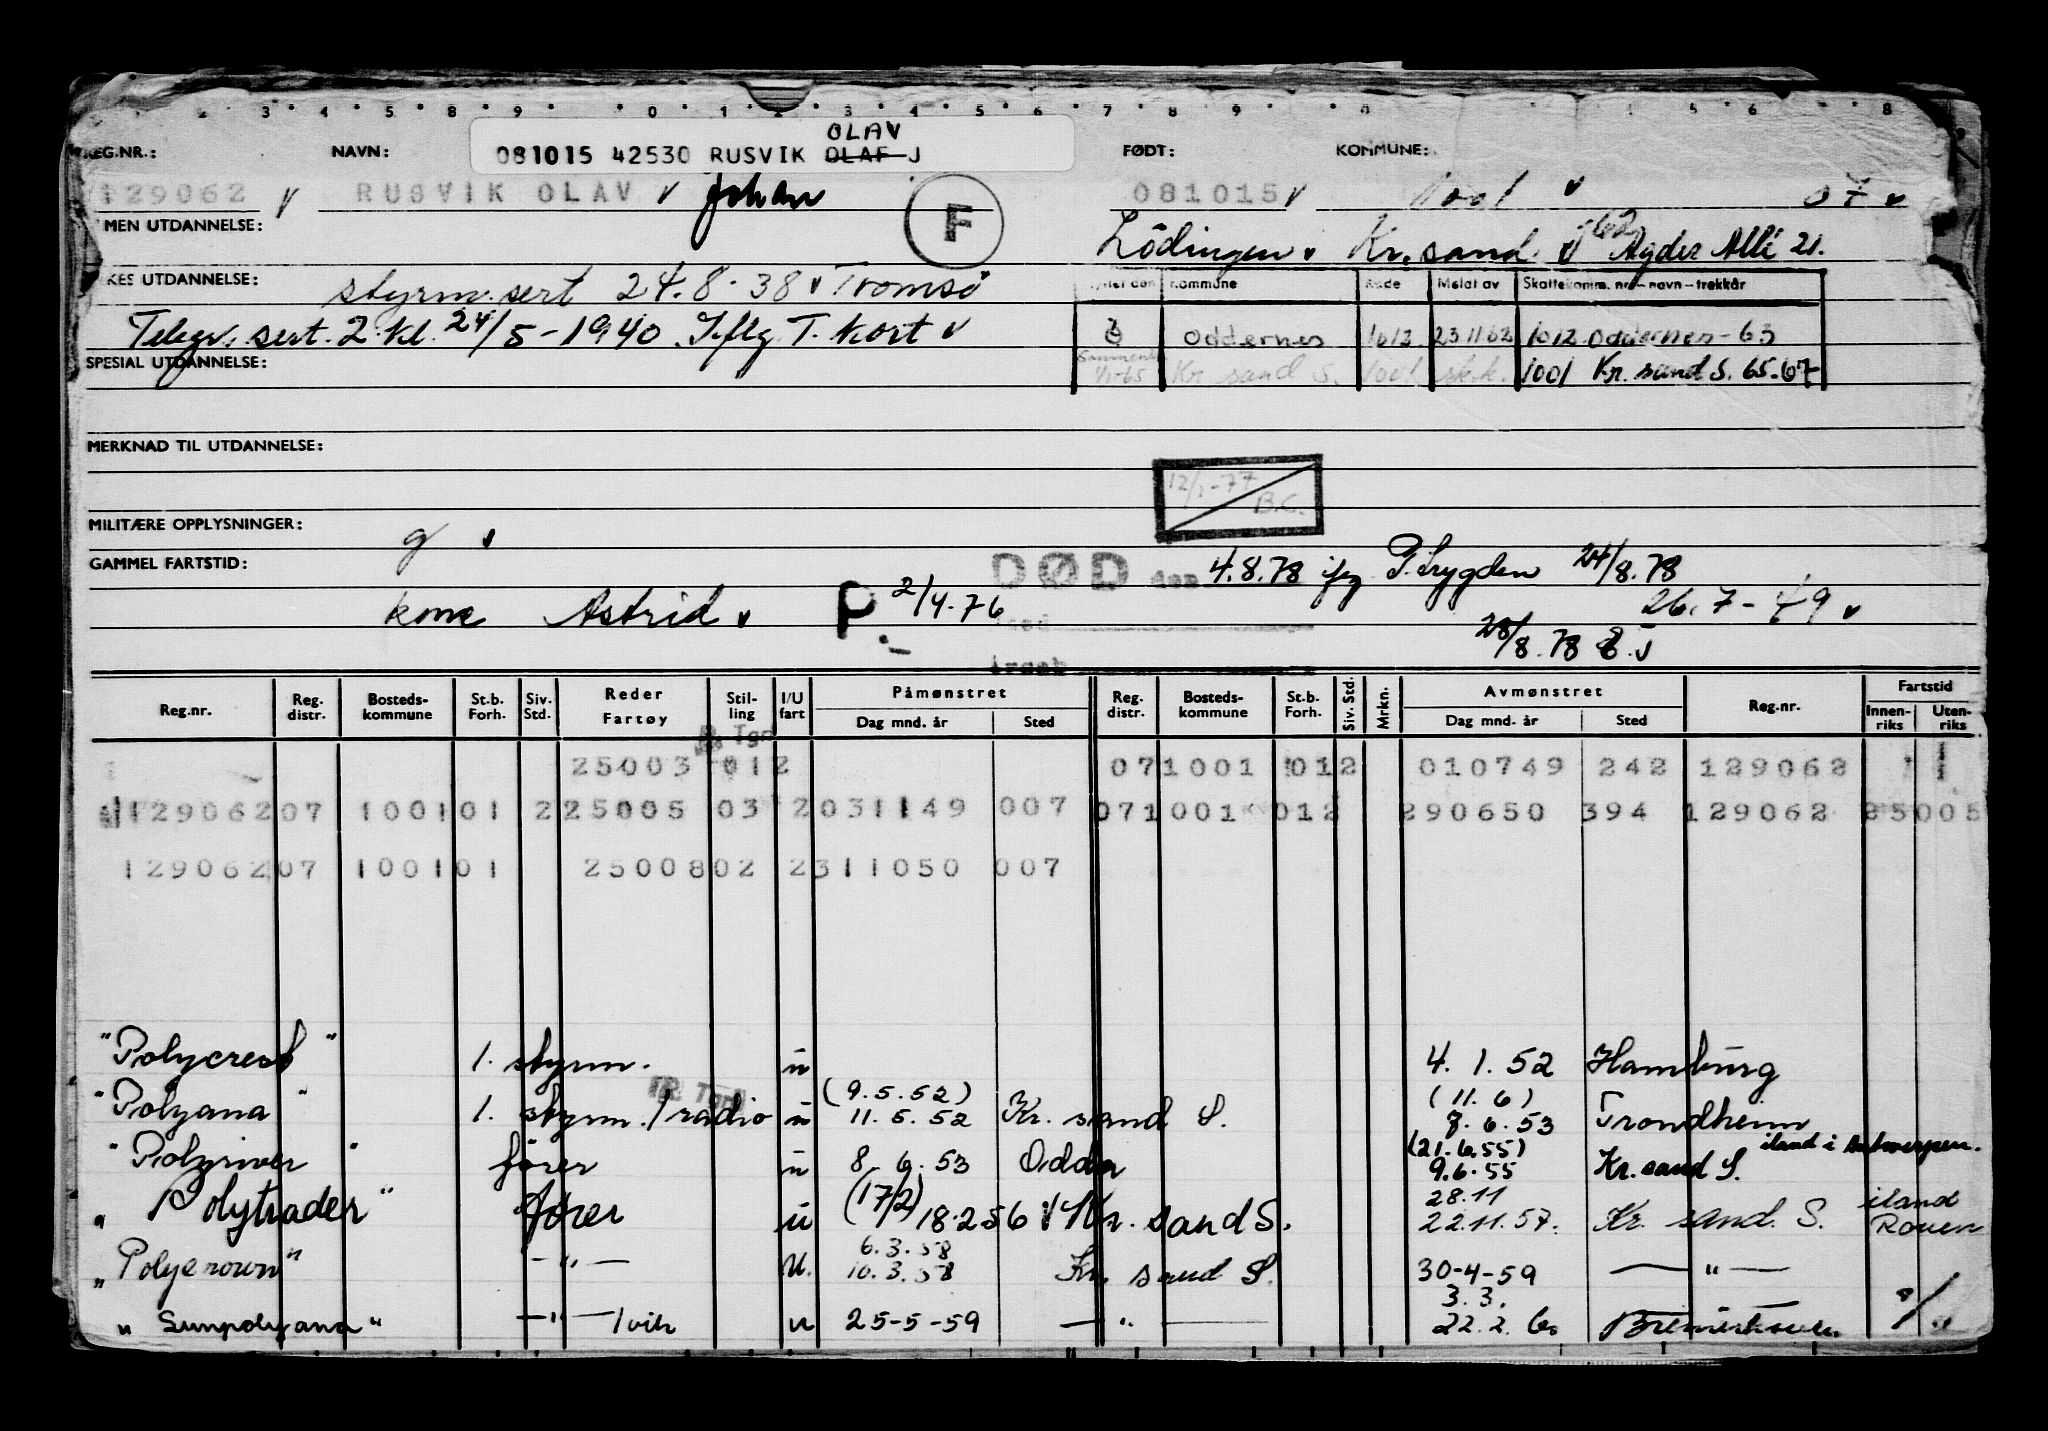 OLAV
REG.NR.: NAVN: 081015 42530 RUSVIK OLAF J FØDT: KOMMUNE:
129062 v RUSVIK OLAV v Johan 081015 v 1001 v 07 v
F
MEN UTDANNELSE: Lödingen v Kr. sand Agder Allé 21.
KES UTDANNELSE: styrm. sert 24.8.38 v Tromsö
kommune Kode Meldt av Skattekomm. nr - navn - trekkår
Telegr. sert. 2 kl. 24/5-1940 Iflg T. kort v
Oddernes 1012 23 11 62 1012 Oddernes - 63
SPESIAL UTDANNELSE: 1/1-65 Kr sand S. 1001 sk.k. 1001 Kr. sand S. 65.67
MERKNAD TIL UTDANNELSE:
12/1-77 B.C.
MILITÆRE OPPLYSNINGER: g v
GAMMEL FARTSTID: DØD den 4.8.78 ifg P.Trygden 24/8.78
kone Astrid v P 2/4-76 26.7-49 v
28/8.78
Reg.nr. Reg. distr. Bosteds-kommune St.b. Forh. Siv. Std. Reder Fartøy Stil-ling I/U fart Påmønstret Dag mnd. år Sted Reg. distr. Bosteds-kommune St.b. Forh. Siv. Std. Mrkn. Avmønstret Dag mnd. år Sted Reg.nr. Fartstid Innen-riks Uten-riks
Tgn
25003 012 071001 012 010749 242 129062
129062 07 1001 01 2 25005 03 2 031149 007 071001 012 290650 394 129062 25005
129062 07 1001 01 25008 02 2 311050 007
"Polycrest" 1. styrm. u 4.1.52 Hamburg
"Polyana" 1. styrm./radio u (9.5.52) 11.5.52 Kr. sand S. (11.6) 7.6.53 Trondheim
"Polyriver" förer u 8.6.53 Odda (21.6.55) 9.6.55 Kr. sand S. iland i Antwerpen.
"Polytrader" förer u (17/2) 18.2.56 Kr. sand S. 28.11 22.11.57. Kr. sand. S. iland Rouen
"Polycrown" —"— U. 6.3.58 10.3.58 Kr. sand S. 30-4-59 —"—
"Sunpolyana" —"— /vik u 25-5-59 —"— 3.3. 22.2.60 Bremerhaven